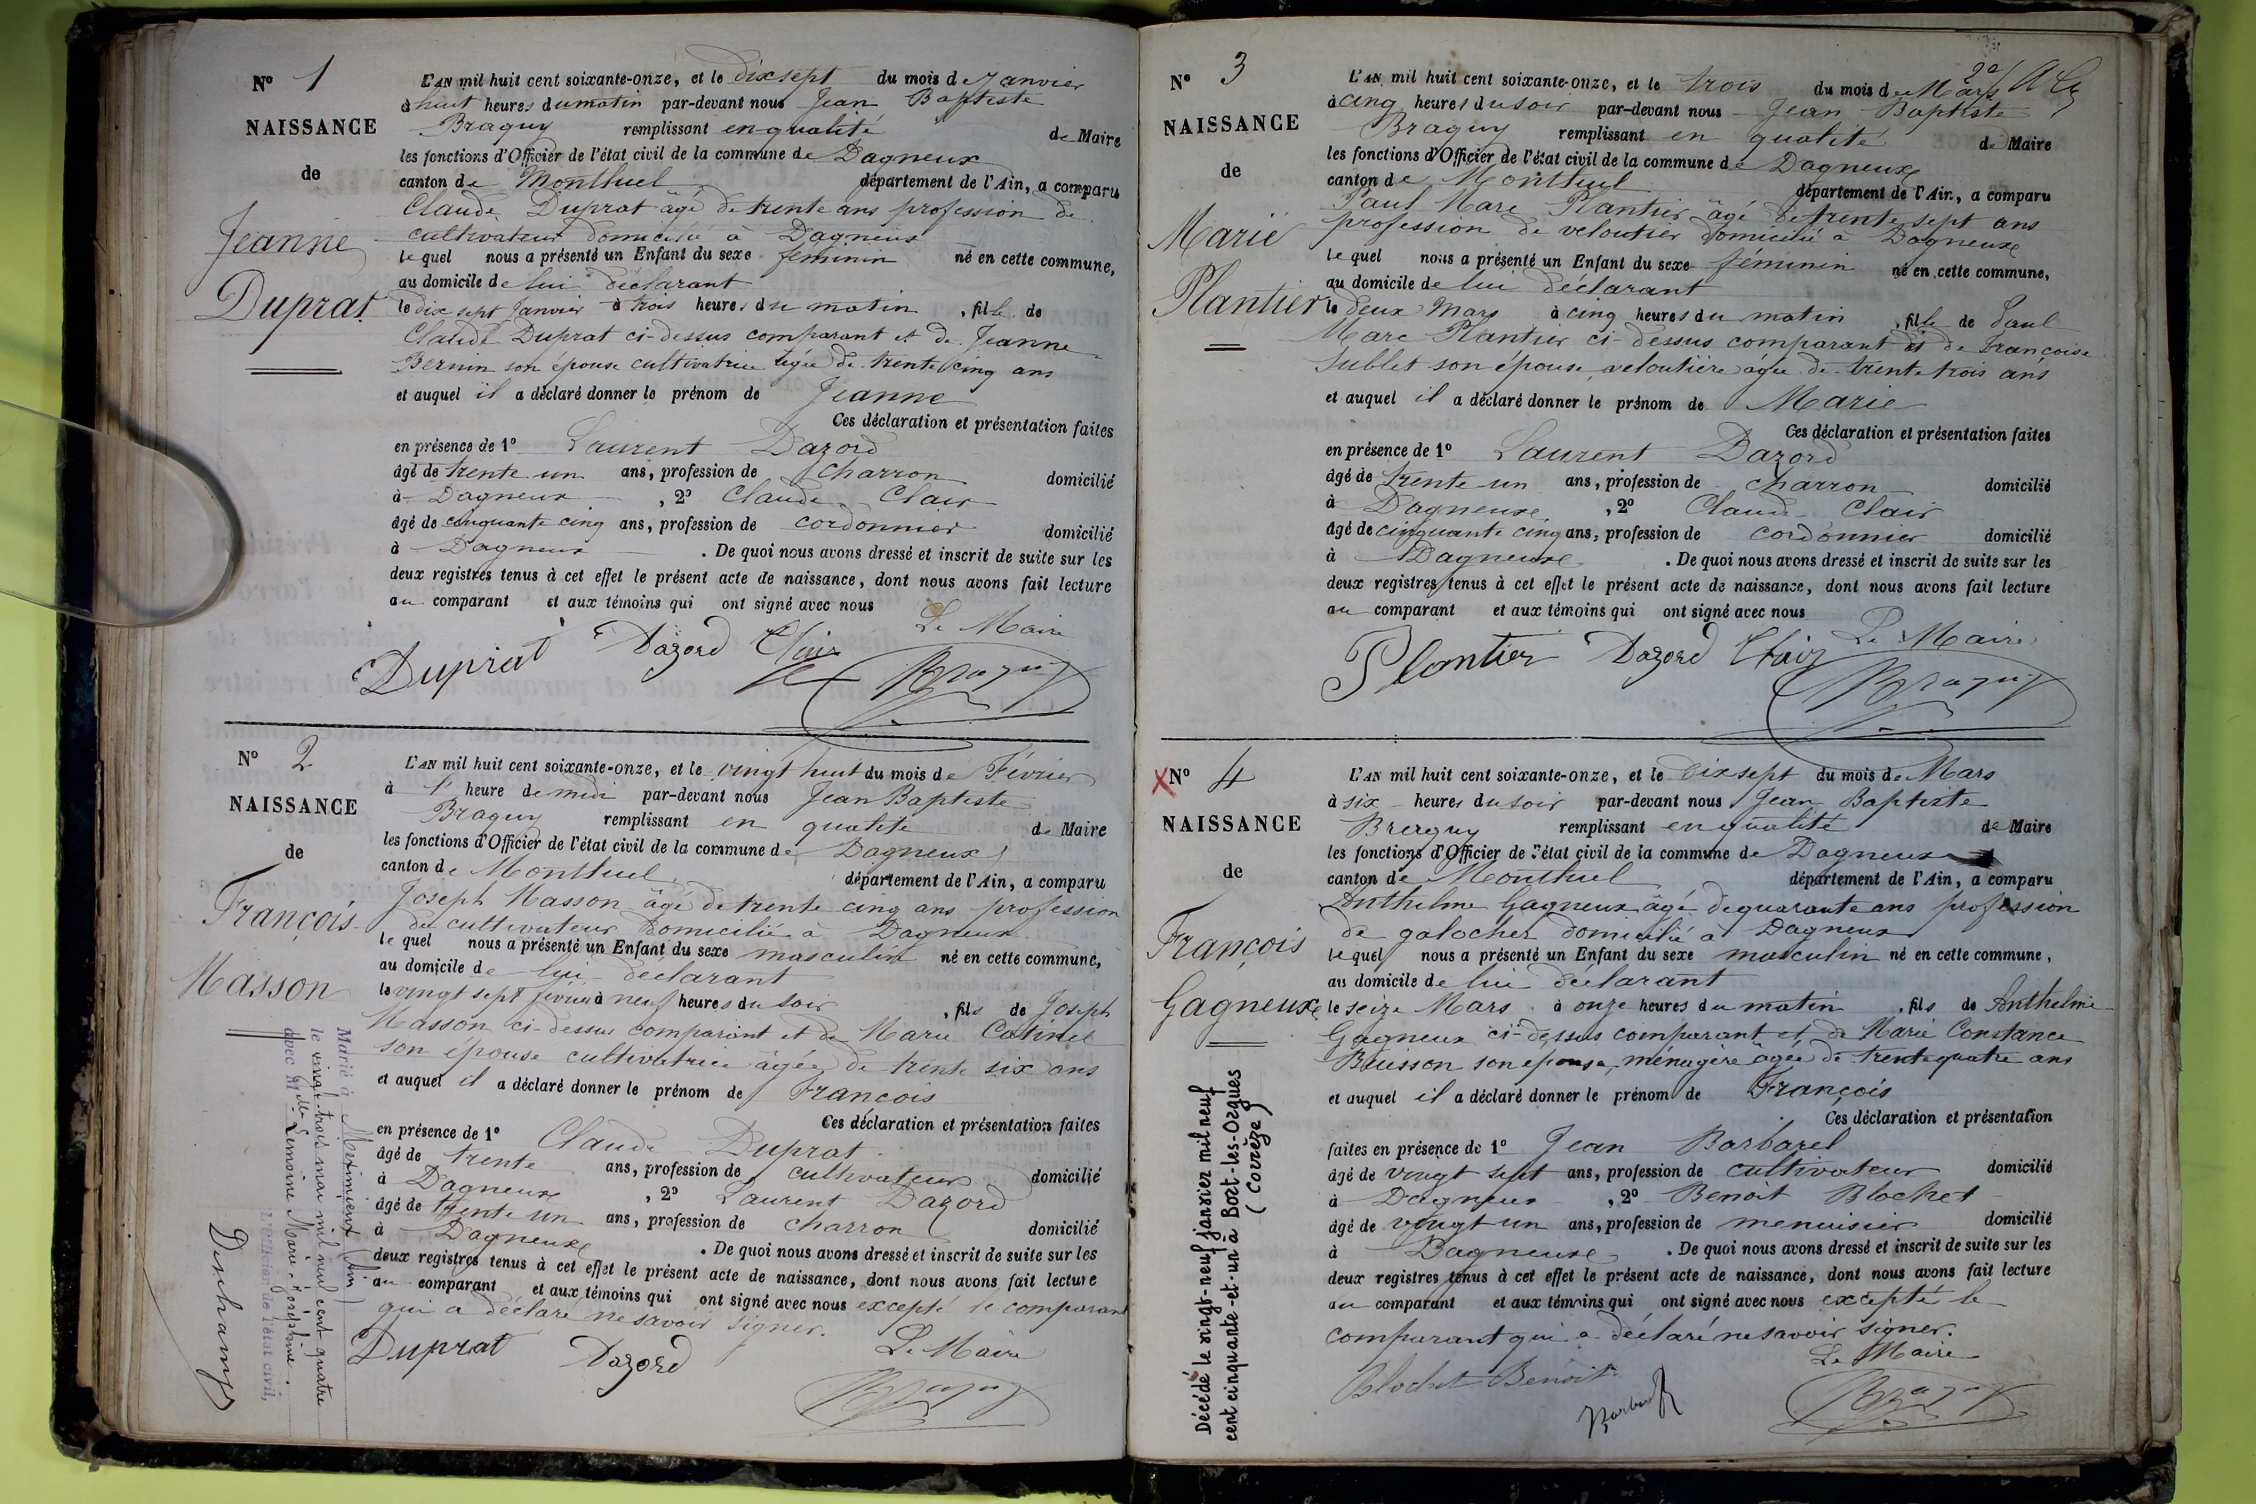 Nº 1
NAISSANCE
de
Jeanne
Duprat
L'AN mil huit cent soixante-onze, et le dix sept du mois de Janvier
à huit heures du matin par-devant nous Jean Baptiste
Braguy remplissant en qualité de Maire
les fonctions d'Officier de l'état civil de la commune de Dagneux
canton de Montluel département de l'Ain, a comparu
Claude Duprat âgé de trente ans profession de
cultivateur domicilié à Dagneux
lequel nous a présenté un Enfant du sexe féminin né en cette commune,
au domicile de lui déclarant
le dix sept Janvier à trois heures du matin, fille de
Claude Duprat ci-dessus comparant et de Jeanne
Bernin son épouse cultivatrice âgée de trente cinq ans
et auquel il a déclaré donner le prénom de Jeanne
Ces déclaration et présentation faites
en présence de 1º Laurent Dazord
âgé de trente un ans, profession de charron domicilié
à Dagneux, 2º Claude Clair
âgé de cinquante cinq ans, profession de cordonnier domicilié
à Dagneux. De quoi nous avons dressé et inscrit de suite sur les
deux registres tenus à cet effet le présent acte de naissance, dont nous avons fait lecture
au comparant et aux témoins qui ont signé avec nous
Le Maire
Duprat Dazord Clair Braguy
Nº 2
NAISSANCE
de
François
Masson
L'AN mil huit cent soixante-onze, et le vingt huit du mois de Février
à 1 heure de midi par-devant nous Jean Baptiste
Braguy remplissant en qualité de Maire
les fonctions d'Officier de l'état civil de la commune de Dagneux
canton de Montluel département de l'Ain, a comparu
Joseph Masson âgé de trente cinq ans profession
de cultivateur domicilié à Dagneux
lequel nous a présenté un Enfant du sexe masculin né en cette commune,
au domicile de lui déclarant
le vingt sept février à neuf heures du soir, fils de Joseph
Masson ci-dessus comparant et de Marie
son épouse cultivatrice âgée de trente six ans
et auquel il a déclaré donner le prénom de François
Ces déclaration et présentation faites
en présence de 1º Claude Duprat
âgé de trente ans, profession de cultivateur domicilié
à Dagneux, 2º Laurent Dazord
âgé de trente un ans, profession de charron domicilié
à Dagneux. De quoi nous avons dressé et inscrit de suite sur les
deux registres tenus à cet effet le présent acte de naissance, dont nous avons fait lecture
au comparant et aux témoins qui ont signé avec nous excepté le comparant
qui a déclaré ne savoir signer.
Le Maire
Duprat Dazord Braguy
Marié à Miximieux (Ain)
le vingt-trois mai mil neuf cent quatre
avec Mlle Lemoine Marie Joséphine.
L'officier de l'état civil,
Deschamps
Nº 3
NAISSANCE
de
Marie
Plantier
L'AN mil huit cent soixante-onze, et le trois du mois de Mars
à cinq heures du soir par-devant nous Jean Baptiste
Braguy remplissant en qualité de Maire
les fonctions d'Officier de l'état civil de la commune de Dagneux
canton de Montluel département de l'Ain, a comparu
Paul Marc Plantier âgé de trente sept ans
profession de veloutier domicilié à Dagneux
lequel nous a présenté un Enfant du sexe féminin né en cette commune,
au domicile de lui déclarant
le deux Mars à cinq heures du matin, fille de Paul
Marc Plantier ci-dessus comparant et de Françoise
Sublet son épouse veloutière âgée de trente trois ans
et auquel il a déclaré donner le prénom de Marie
Ces déclaration et présentation faites
en présence de 1º Laurent Dazord
âgé de trente un ans, profession de charron domicilié
à Dagneux, 2º Claude Clair
âgé de cinquante cinq ans, profession de cordonnier domicilié
à Dagneux. De quoi nous avons dressé et inscrit de suite sur les
deux registres tenus à cet effet le présent acte de naissance, dont nous avons fait lecture
au comparant et aux témoins qui ont signé avec nous
Le Maire
Plantier Dazord Clair Braguy
X Nº 4
NAISSANCE
de
François
Gagneux
L'AN mil huit cent soixante-onze, et le dix sept du mois de Mars
à six heures du soir par-devant nous Jean Baptiste
Braguy remplissant en qualité de Maire
les fonctions d'Officier de l'état civil de la commune de Dagneux
canton de Montluel département de l'Ain, a comparu
Anthelme Gagneux âgé de quarante ans profession
de galocher domicilié à Dagneux
lequel nous a présenté un Enfant du sexe masculin né en cette commune,
au domicile de lui déclarant
le seize Mars à onze heures du matin, fils de Anthelme
Gagneux ci-dessus comparant et de Marie Constance
Buisson son épouse, ménagère âgée de trente quatre ans
et auquel il a déclaré donner le prénom de François
Ces déclaration et présentation
faites en présence de 1º Jean Barbarel
âgé de vingt sept ans, profession de cultivateur domicilié
à Dagneux, 2º Benoit Blochet
âgé de vingt un ans, profession de menuisier domicilié
à Dagneux. De quoi nous avons dressé et inscrit de suite sur les
deux registres tenus à cet effet le présent acte de naissance, dont nous avons fait lecture
au comparant et aux témoins qui ont signé avec nous excepté le
comparant qui a déclaré ne savoir signer.
Le Maire
Blochet Benoit Braguy
Décédé le vingt-neuf janvier mil neuf
cent cinquante-et-un à Bort-les-Orgues
(Corrèze)